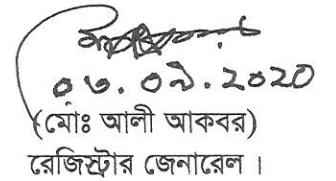 ০৩.০৯.2020
(মোঃ আলী আকবর)
রেজিস্ট্রার জেনারেল।